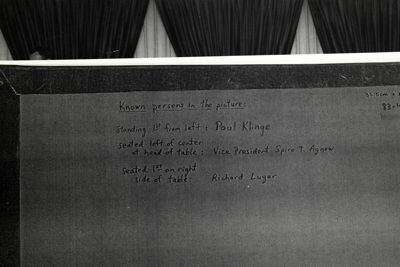 Known persons in the picture:
standing 1st from left: Paul Klinge
seated left of center
at head of table: Vice President Spiro T. Agnew
seated 1st on right
side of table: Richard Lugar